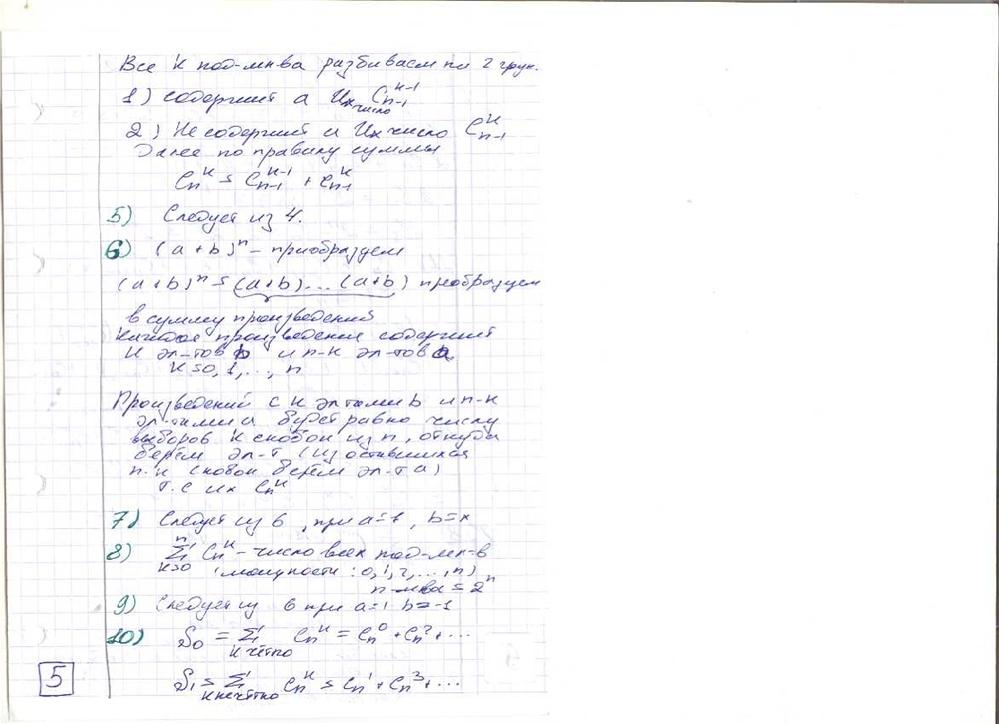 Все k под-мн-ва разбиваем на 2 груп.
1) содержит a Их число C_{n-1}^{k-1}
2) Не содержит a Их число C_{n-1}^{k}
Далее по правилу суммы
C_n^k = C_{n-1}^{k-1} + C_{n-1}^k
5) Следует из 4.
6) (a+b)^n – приобразуем
(a+b)^n = (a+b)...(a+b) преобразуем
в сумму произведений
Каждое произведение содержит
k эл-тов b и n-k эл-тов a
k=0,1,...,n
Произведений с k эл-тами b и n-k
эл-тами a будет равно числу
выборов k скобок из n, откуда
берём эл-т (из оставшихся
n-k скобок берём эл-т a)
т.е их C_n^k
7) Следует из 6, при a=1, b=x
8) ∑_{k=0}^n C_n^k – число всех под-мн-в
(мощности: 0,1,2,...,n)
n-мн-ва = 2^n
9) Следует из 6 при a=1 b=-1
10) S_0 = ∑_{k чётно} C_n^k = C_n^0 + C_n^2 + ...
S_1 = ∑_{k нечётно} C_n^k = C_n^1 + C_n^3 + ...
5